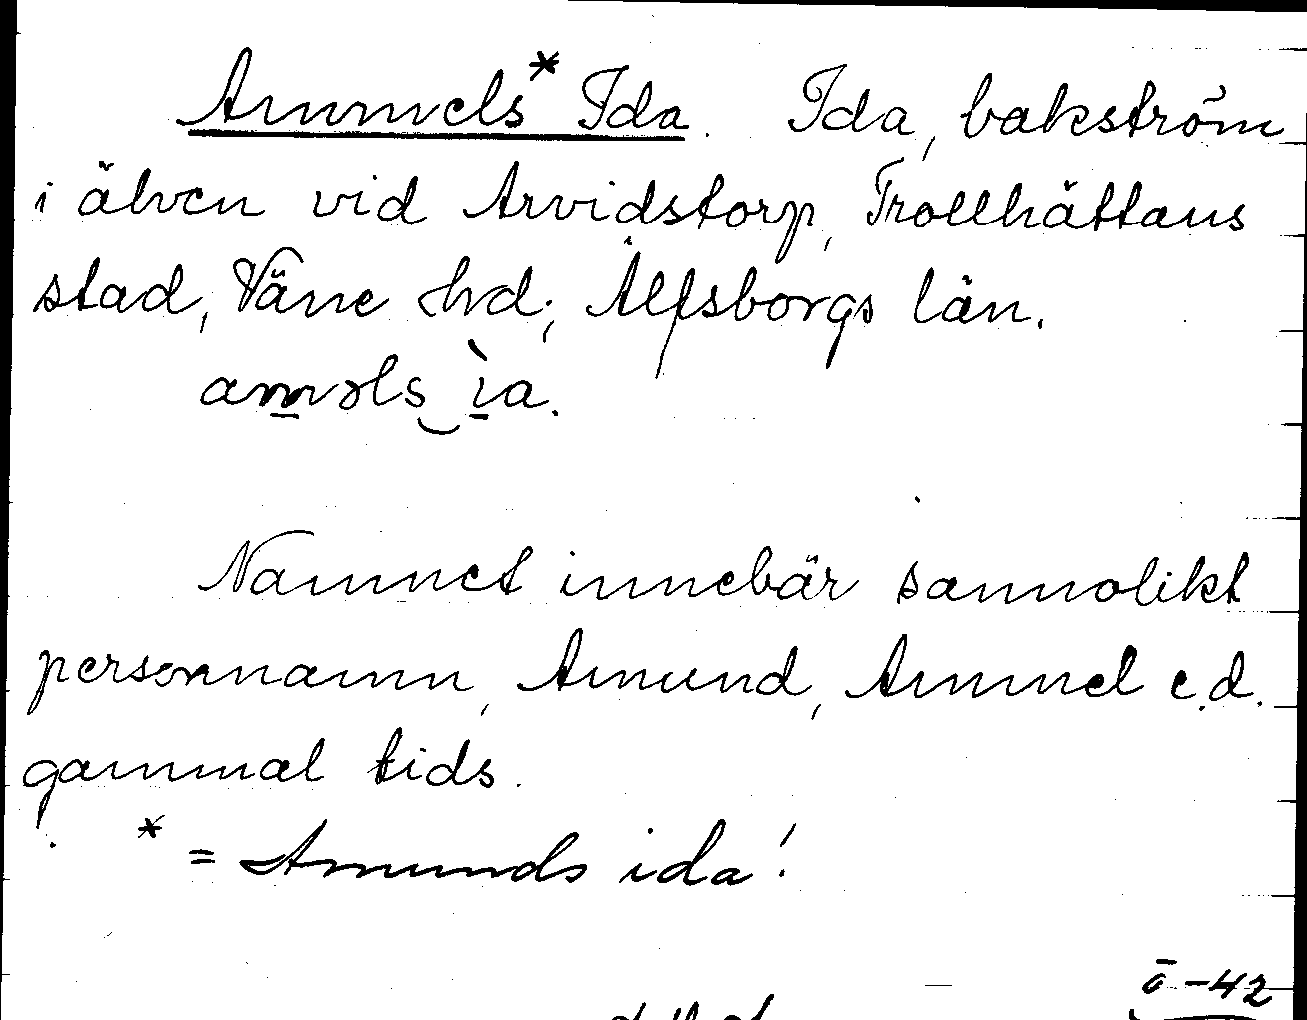 Ammels* Ida. Ida, bakström
i älven vid Arvidstorp, Trollhättans
stad, Väne hrd; Älfsborgs län.
aməls ìa.
Namnet innebär sannolikt
personnamn, Amund, Ammel e.d.
gammal tids.
* = Amunds ida!
ō -42